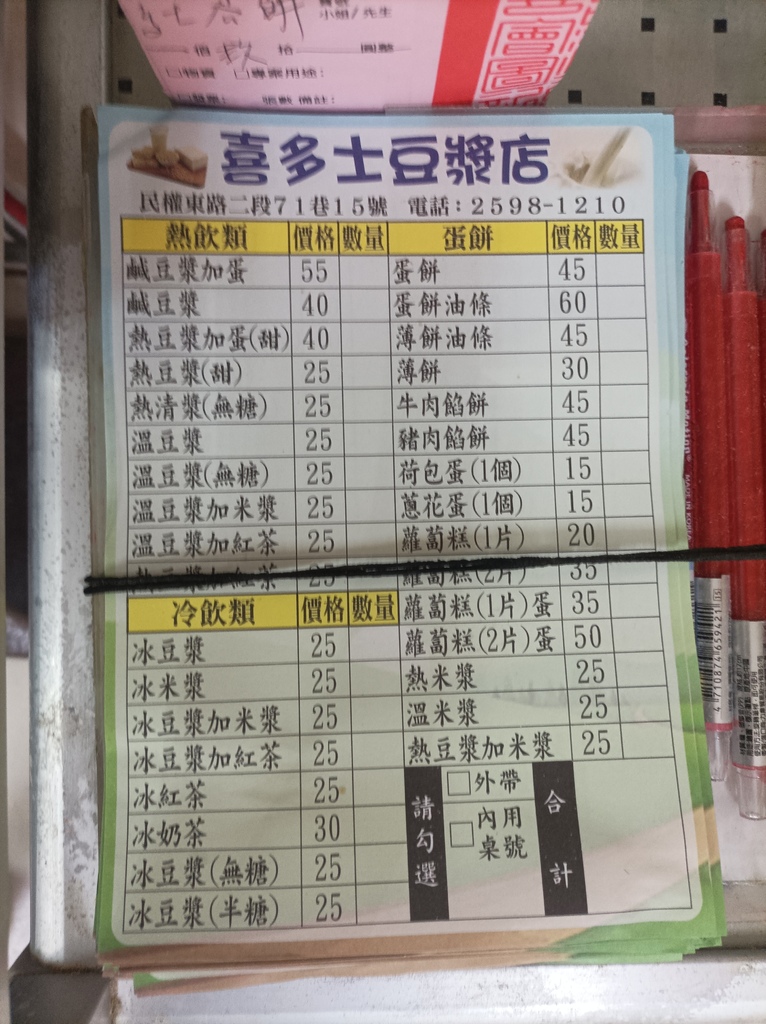 小姐/先生
佰 玖 拾 圓整
喜多士豆漿店
民權東路二段71巷15號 電話:2598-1210
熱飲類 價格 數量
鹹豆漿加蛋 55
鹹豆漿 40
熱豆漿加蛋(甜) 40
熱豆漿(甜) 25
熱清漿(無糖) 25
溫豆漿 25
溫豆漿(無糖) 25
溫豆漿加米漿 25
溫豆漿加紅茶 25
熱豆漿加紅茶 25
冷飲類 價格 數量
冰豆漿 25
冰米漿 25
冰豆漿加米漿 25
冰豆漿加紅茶 25
冰紅茶 25
冰奶茶 30
冰豆漿(無糖) 25
冰豆漿(半糖) 25
蛋餅 價格 數量
蛋餅 45
蛋餅油條 60
薄餅油條 45
薄餅 30
牛肉餡餅 45
豬肉餡餅 45
荷包蛋(1個) 15
蔥花蛋(1個) 15
蘿蔔糕(1片) 20
蘿蔔糕(2片) 35
蘿蔔糕(1片)蛋 35
蘿蔔糕(2片)蛋 50
熱米漿 25
溫米漿 25
熱豆漿加米漿 25
請勾選
□外帶
□內用
桌號
合計
4710874659421